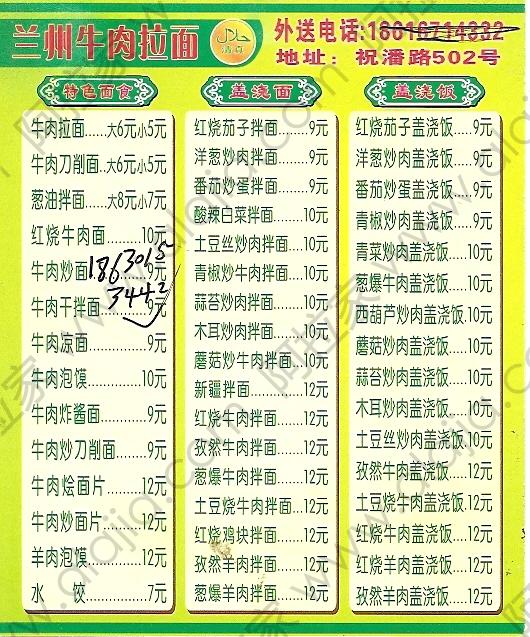 兰州牛肉拉面
حلال
清真
外送电话:18616714332
地址：祝潘路502号
特色面食
牛肉拉面......大6元小5元
牛肉刀削面...大6元小5元
葱油拌面......大8元小7元
红烧牛肉面......10元
牛肉炒面......9元
牛肉干拌面......9元
牛肉凉面......9元
牛肉泡馍......10元
牛肉炸酱面......9元
牛肉炒刀削面......9元
牛肉烩面片......12元
牛肉炒面片......12元
羊肉泡馍......12元
水饺......7元
1863015
3442
盖浇面
红烧茄子拌面......9元
洋葱炒肉拌面......9元
番茄炒蛋拌面......9元
酸辣白菜拌面......10元
土豆丝炒肉拌面...10元
青椒炒牛肉拌面...10元
蒜苔炒肉拌面......10元
木耳炒肉拌面......10元
蘑菇炒牛肉拌面...10元
新疆拌面......12元
红烧牛肉拌面......12元
孜然牛肉拌面......12元
葱爆牛肉拌面......12元
土豆烧牛肉拌面...12元
红烧鸡块拌面......12元
孜然羊肉拌面......12元
葱爆羊肉拌面......12元
盖浇饭
红烧茄子盖浇饭...9元
洋葱炒肉盖浇饭...9元
番茄炒蛋盖浇饭...9元
青椒炒肉盖浇饭...9元
青菜炒肉盖浇饭....10元
葱爆牛肉盖浇饭....10元
西葫芦炒肉盖浇饭.10元
蘑菇炒肉盖浇饭....10元
蒜苔炒肉盖浇饭....10元
木耳炒肉盖浇饭....10元
土豆丝炒肉盖浇饭.10元
孜然牛肉盖浇饭....12元
土豆烧牛肉盖浇饭.12元
红烧牛肉盖浇饭....12元
红烧羊肉盖浇饭....12元
孜然羊肉盖浇饭....12元
阿拉家 www.alajia.com